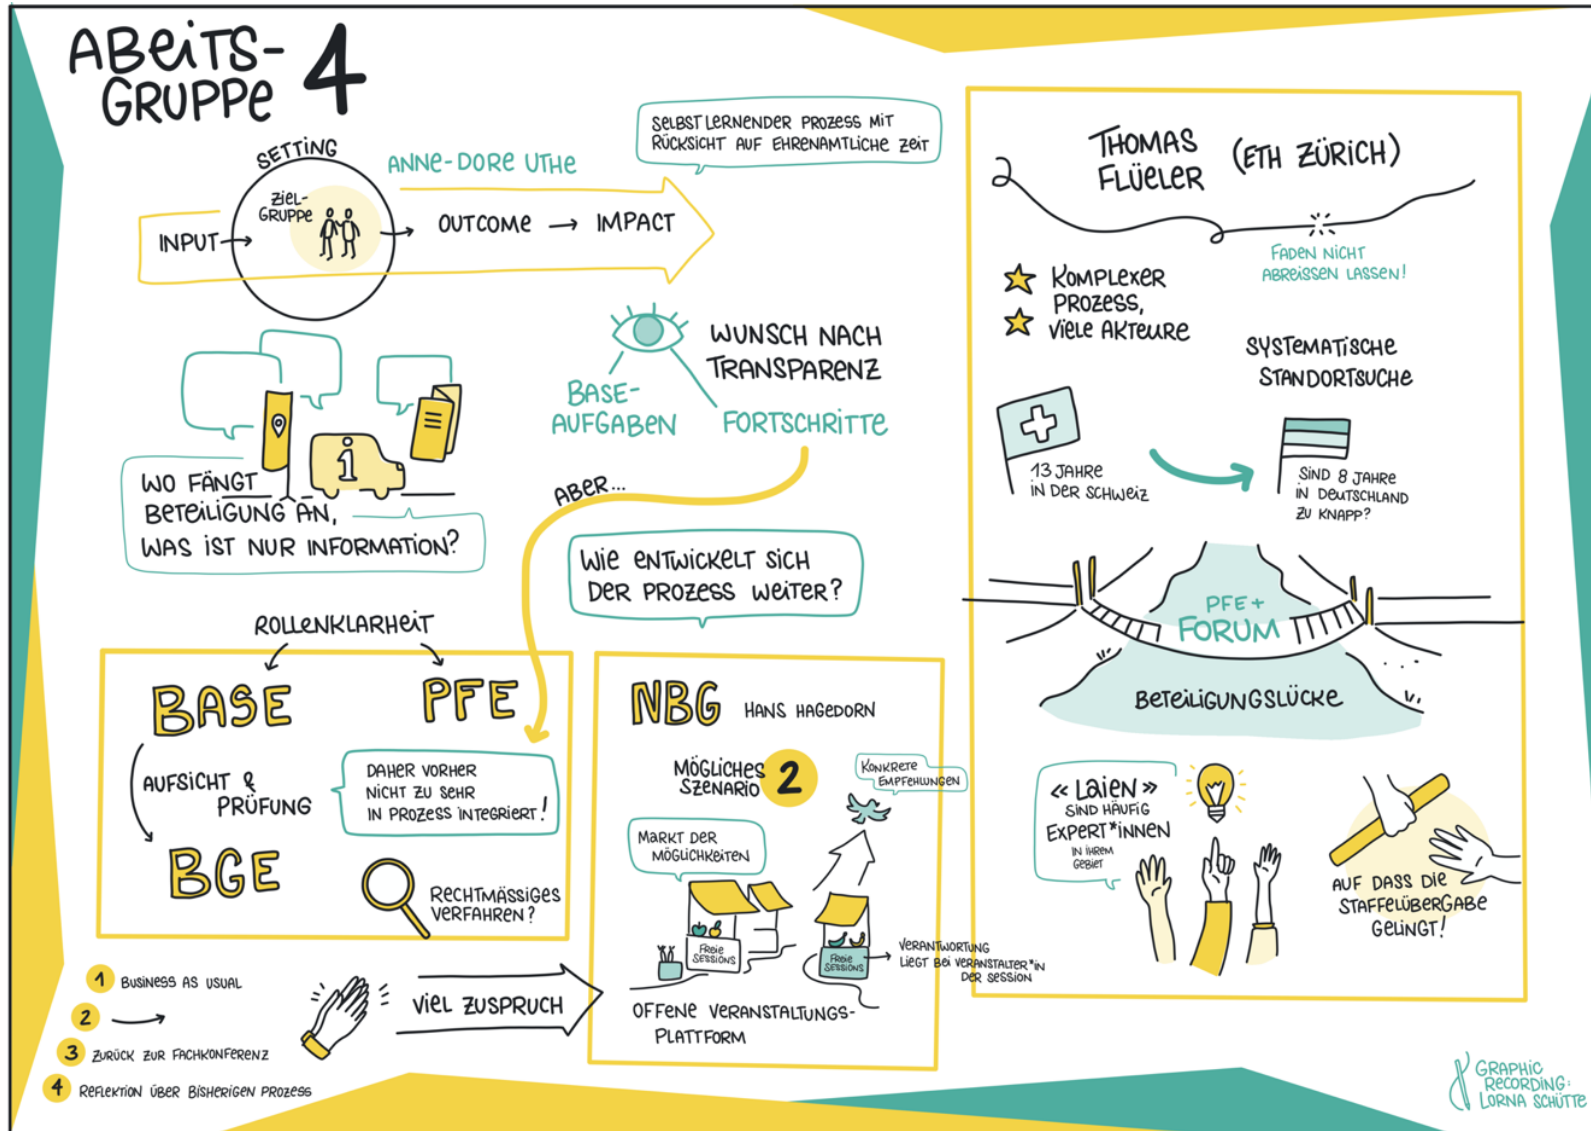 ABEITS-
GRUPPE 4
SETTING
ZIEL-
GRUPPE
INPUT
ANNE-DORE UTHE
OUTCOME → IMPACT
SELBST LERNENDER PROZESS MIT
RÜCKSICHT AUF EHRENAMTLICHE ZEIT
WUNSCH NACH
TRANSPARENZ
BASE-
AUFGABEN
FORTSCHRITTE
i
WO FÄNGT
BETEILIGUNG AN,
WAS IST NUR INFORMATION?
ABER...
WIE ENTWICKELT SICH
DER PROZESS WEITER?
ROLLENKLARHEIT
BASE
PFE
AUFSICHT &
PRÜFUNG
BGE
DAHER VORHER
NICHT ZU SEHR
IN PROZESS INTEGRIERT!
RECHTMÄSSIGES
VERFAHREN?
1 BUSINESS AS USUAL
2 →
3 ZURÜCK ZUR FACHKONFERENZ
4 REFLEKTION ÜBER BISHERIGEN PROZESS
VIEL ZUSPRUCH
NBG HANS HAGEDORN
MÖGLICHES
SZENARIO 2
KONKRETE
EMPFEHLUNGEN
MARKT DER
MÖGLICHKEITEN
FREIE
SESSIONS
FREIE
SESSIONS
VERANTWORTUNG
LIEGT BEI VERANSTALTER*IN
DER SESSION
OFFENE VERANSTALTUNGS-
PLATTFORM
THOMAS
FLÜELER
(ETH ZÜRICH)
FADEN NICHT
ABREISSEN LASSEN!
KOMPLEXER
PROZESS,
VIELE AKTEURE
SYSTEMATISCHE
STANDORTSUCHE
13 JAHRE
IN DER SCHWEIZ
SIND 8 JAHRE
IN DEUTSCHLAND
ZU KNAPP?
PFE +
FORUM
BETEILIGUNGSLÜCKE
« LAIEN »
SIND HÄUFIG
EXPERT*INNEN
IN IHREM
GEBIET
AUF DASS DIE
STAFFELÜBERGABE
GELINGT!
GRAPHIC
RECORDING:
LORNA SCHÜTTE